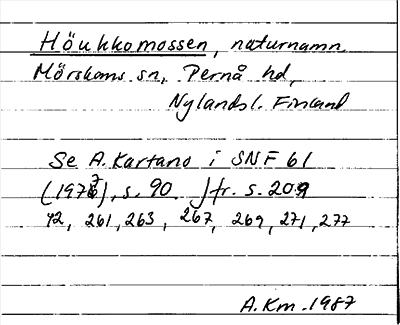 Höukkomossen, naturnamn
Mörskoms sn, Pernå hd,
Nylandsl. Finland
Se A. Kartano i SNF 61
(1977), s. 90. Jfr. s. 209
42, 261, 263, 267, 269, 271, 277
A.Km. 1987